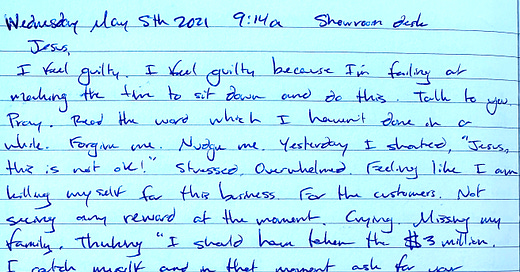 Wednesday May 5th 2021 9:14a Showroom desk
Jesus,
I feel guilty. I feel guilty because I'm failing at
making the time to sit down and do this. Talk to you.
Pray. Read the word which I haven't done in a
while. Forgive me. Nudge me. Yesterday I shouted, "Jesus,
this is not ok!" Stressed. Overwhelmed. Feeling like I am
killing myself for this business. For the customers. Not
seeing any reward at the moment. Crying. Missing my
family. Thinking "I should have taken the $3 million.
I catch myself and in that moment ask for you